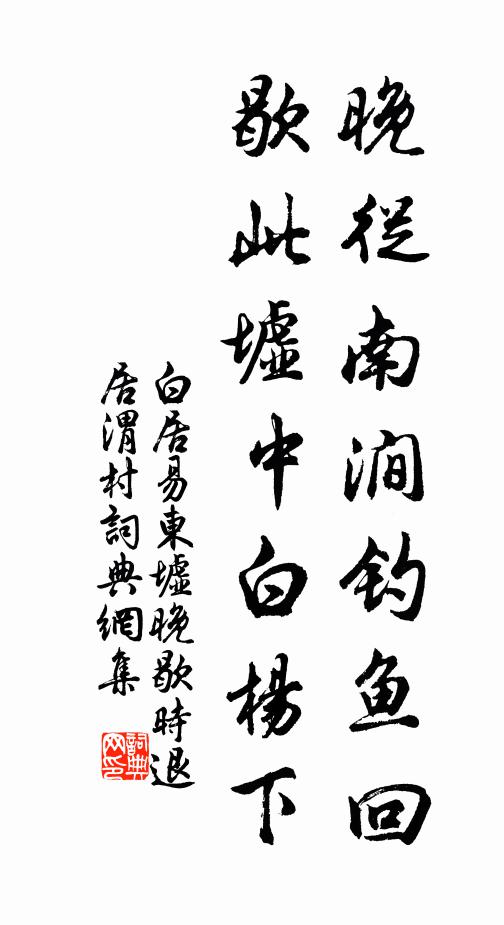 晚從南澗钓鱼回
歇此墟中白楊下
白居易東墟晚歇時退
居渭村詞典網集
詞典
网印